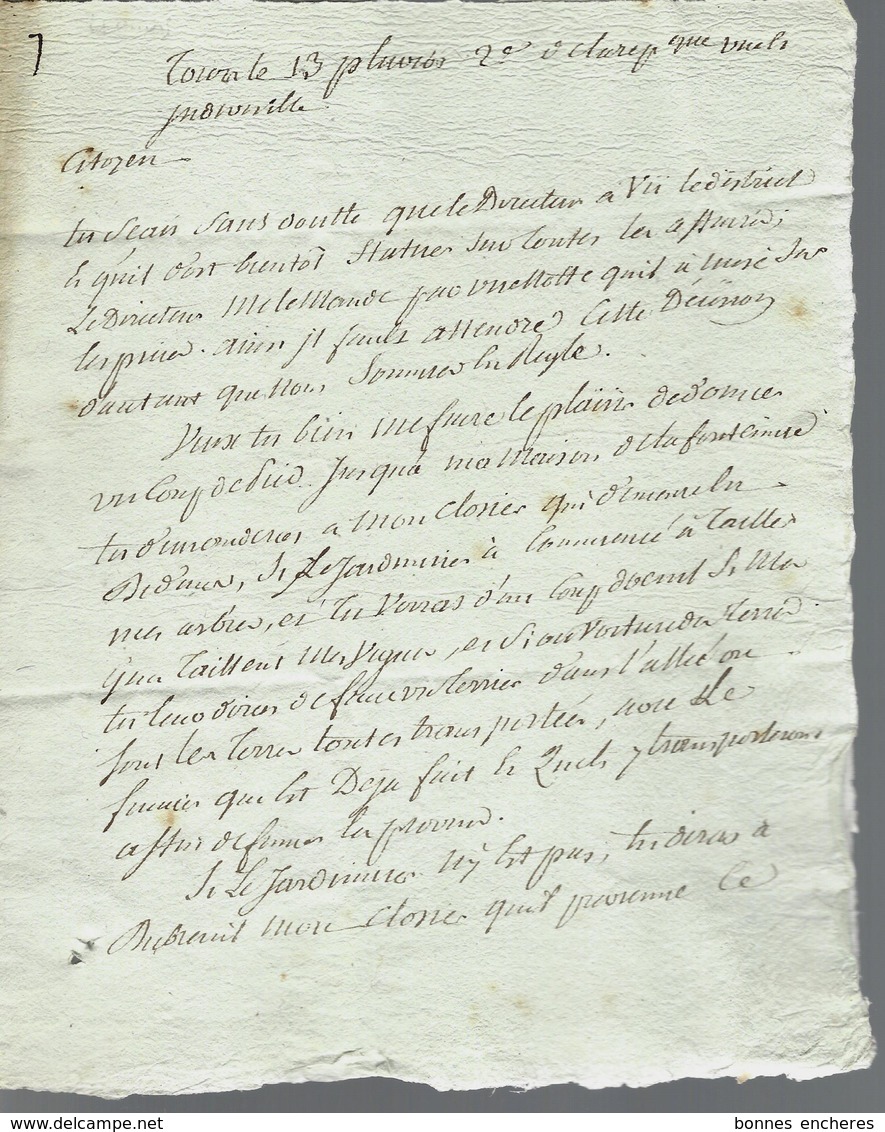 7
Tours le 13 pluvios 2e de la rep que une &
indivisible
Citoyen
tu scais sans doutte que le Directeur à Vû le district
& quil doit bientôt statuer sur toutes les affaires,
Le Directeur me le mande par une Notte quil à
les prix. ainsi il faut attendre cette Décision
d'autant que nous sommes en Regle.
Veux tu bien me faire le plaisir de donner
un Coup de pied jusqua ma maison de la
tu demanderas a mon closier qui demeure
si Le Jardinier à commencé à tailler
mes arbres, et tu verras d'un coup doeuil si
taillent mes vignes, et si on voiture des terres
tu leur diras de faire un terrier dans l'allée ou
sont les terres toutes transportées, avec Le
fumier que est Deja fait & quels y transporterons
affin de fumer les provins.
Si Le Jardinier n'y est pas, tu diras à
Dubreuil mon closier quil previenne Ce
bonnes encheres